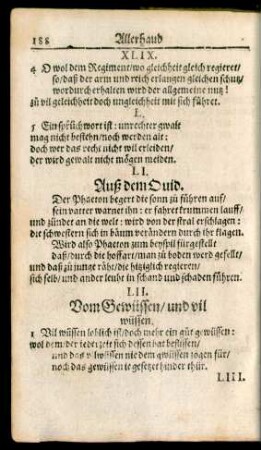 188 Allerhand
XLIX.
4 O wol dem Regiment/wo gleichheit gleich regieret/
so/daß der arm und reich erlangen gleichen schutz/
wordurch erhalten wird der allgemeine nutz!
zů vil gleichheit doch ungleichheit mit sich führet.
L.
5 Ein sprüchwort ist: unrechter gwalt
mag nicht bestehn/noch werden alt:
doch wer das recht nicht wil erleiden/
der wird gewalt nicht mögen meiden.
LI.
Auß dem Ouid.
Der Phaeton begert die sonn zů führen auf/
sein vatter warnet ihn: er fahret krummen lauff/
und zündet an die welt: wird von der stral erschlagen:
die schwestern sich in bäum verändern durch ihr klagen.
Wird also Phaeton zum beyspil fürgestellt
daß/durch die hoffart/man zů boden werd gefellt/
und daß zů junge räht/die hitziglich regieren/
sich selb/ und ander leuht in schand und schaden führen.
LII.
Vom Gewüssen/ und vil
wüssen.
1 Vil wüssen loblich ist/doch mehr ein gůt gewüssen:
wol dem/der jederzeit sich dessen hat beflissen/
und das vilwüssen nie dem gwüssen zogen für/
noch das gewüssen je gesetzet hinder thür.
LIII.